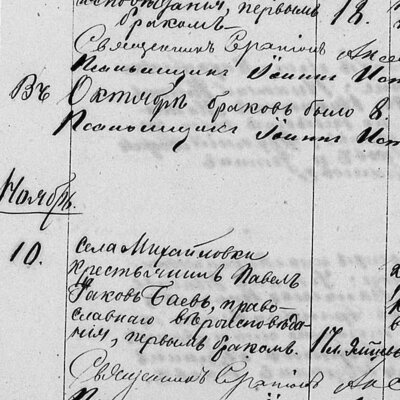 исповѣданія, первымъ 18.
бракомъ
Священникъ Серапіонъ Аксе
Псаломщикъ Іоаннъ Ист
Въ Октябрѣ браковъ было 8.
Псаломщикъ Іоаннъ Ист
Ноябрь.
10. села Михайловки
крестьянинъ Павелъ
Іаковъ Баевъ, право-
славнаго вѣроисповѣда-
нія, первымъ бракомъ. 17л.
Священникъ Серапіонъ Аксе